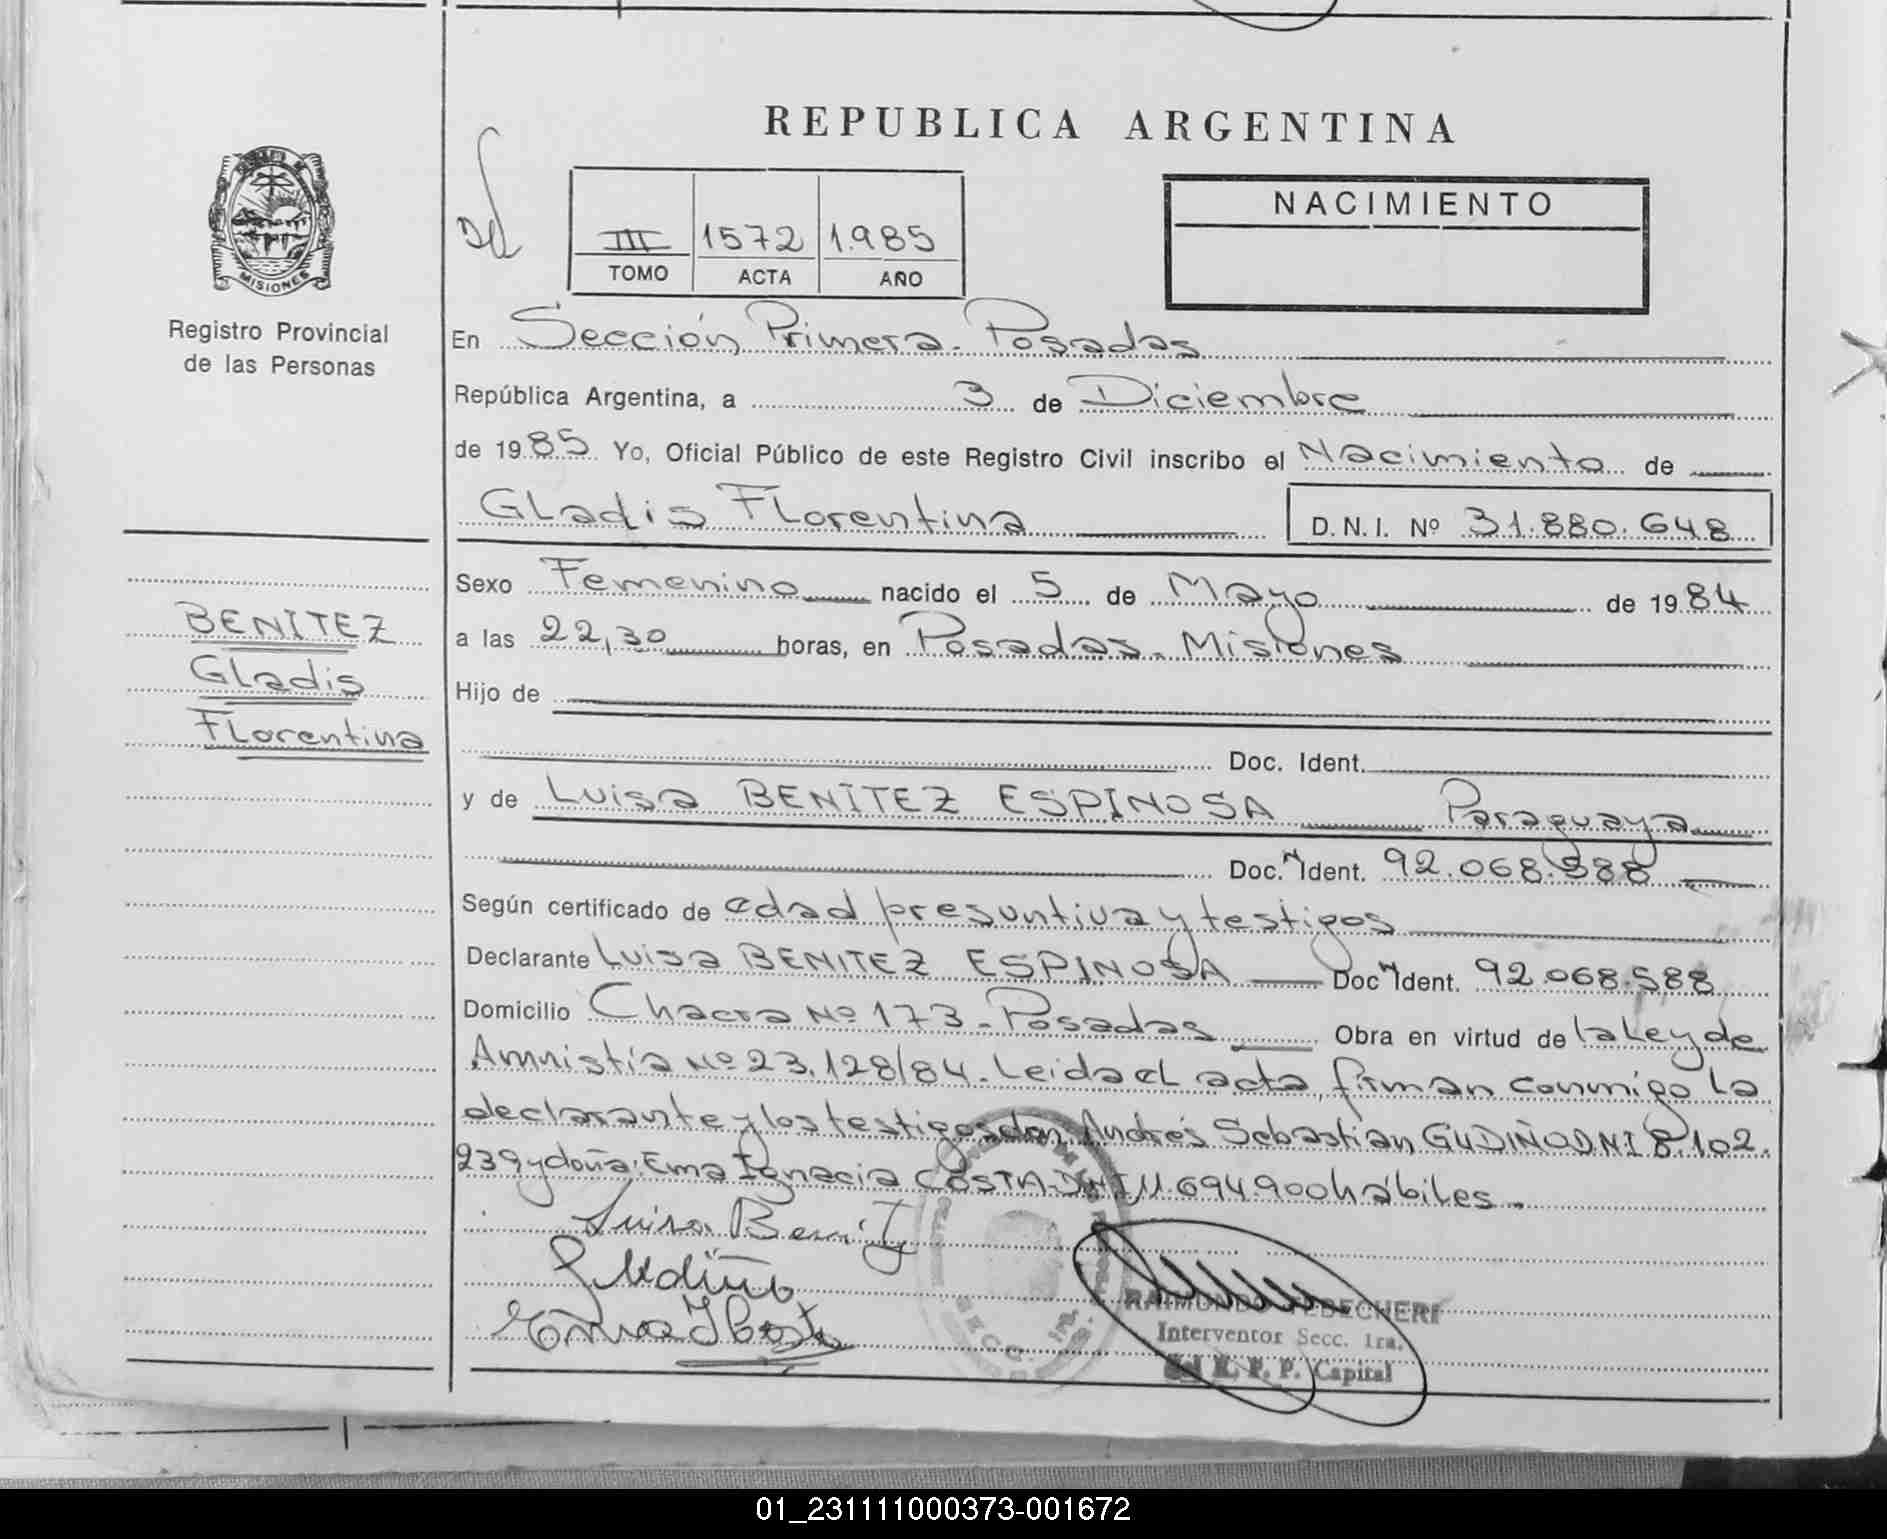 REPUBLICA ARGENTINA
MISIONES
Registro Provincial
de las Personas
III 1572 1.985
TOMO ACTA AÑO
NACIMIENTO
En Sección Primera. Posadas
República Argentina, a 3 de Diciembre
de 1985 Yo, Oficial Público de este Registro Civil inscribo el Nacimiento de
Gladis Florentina D.N.I. Nº 31.880.648
BENITEZ
Gladis
Florentina
Sexo Femenino nacido el 5 de Mayo de 1984
a las 22,30 horas, en Posadas. Misiones
Hijo de
Doc. Ident.
y de Luisa BENITEZ ESPINOSA Paraguaya
Doc. Ident. 92.068.588
Según certificado de edad presuntiva y testigos
Declarante Luisa BENITEZ ESPINOSA Doc Ident. 92.068.588
Domicilio Chacra Nº 173 - Posadas Obra en virtud de la Ley de
Amnistía Nº 23.128/84. Leida el acta, firman conmigo la
declarante y los testigos don Andrés Sebastian GUDIÑO DNI 8.102.
239 y doña: Ema Ignacia COSTA-DNI 11.694.900 hábiles.
Luisa Benitez
Gudiño
Ema I Costa
RAIMUNDO TEBECHERI
Interventor Secc. 1ra.
R. P. P. Capital
01_231111000373-001672